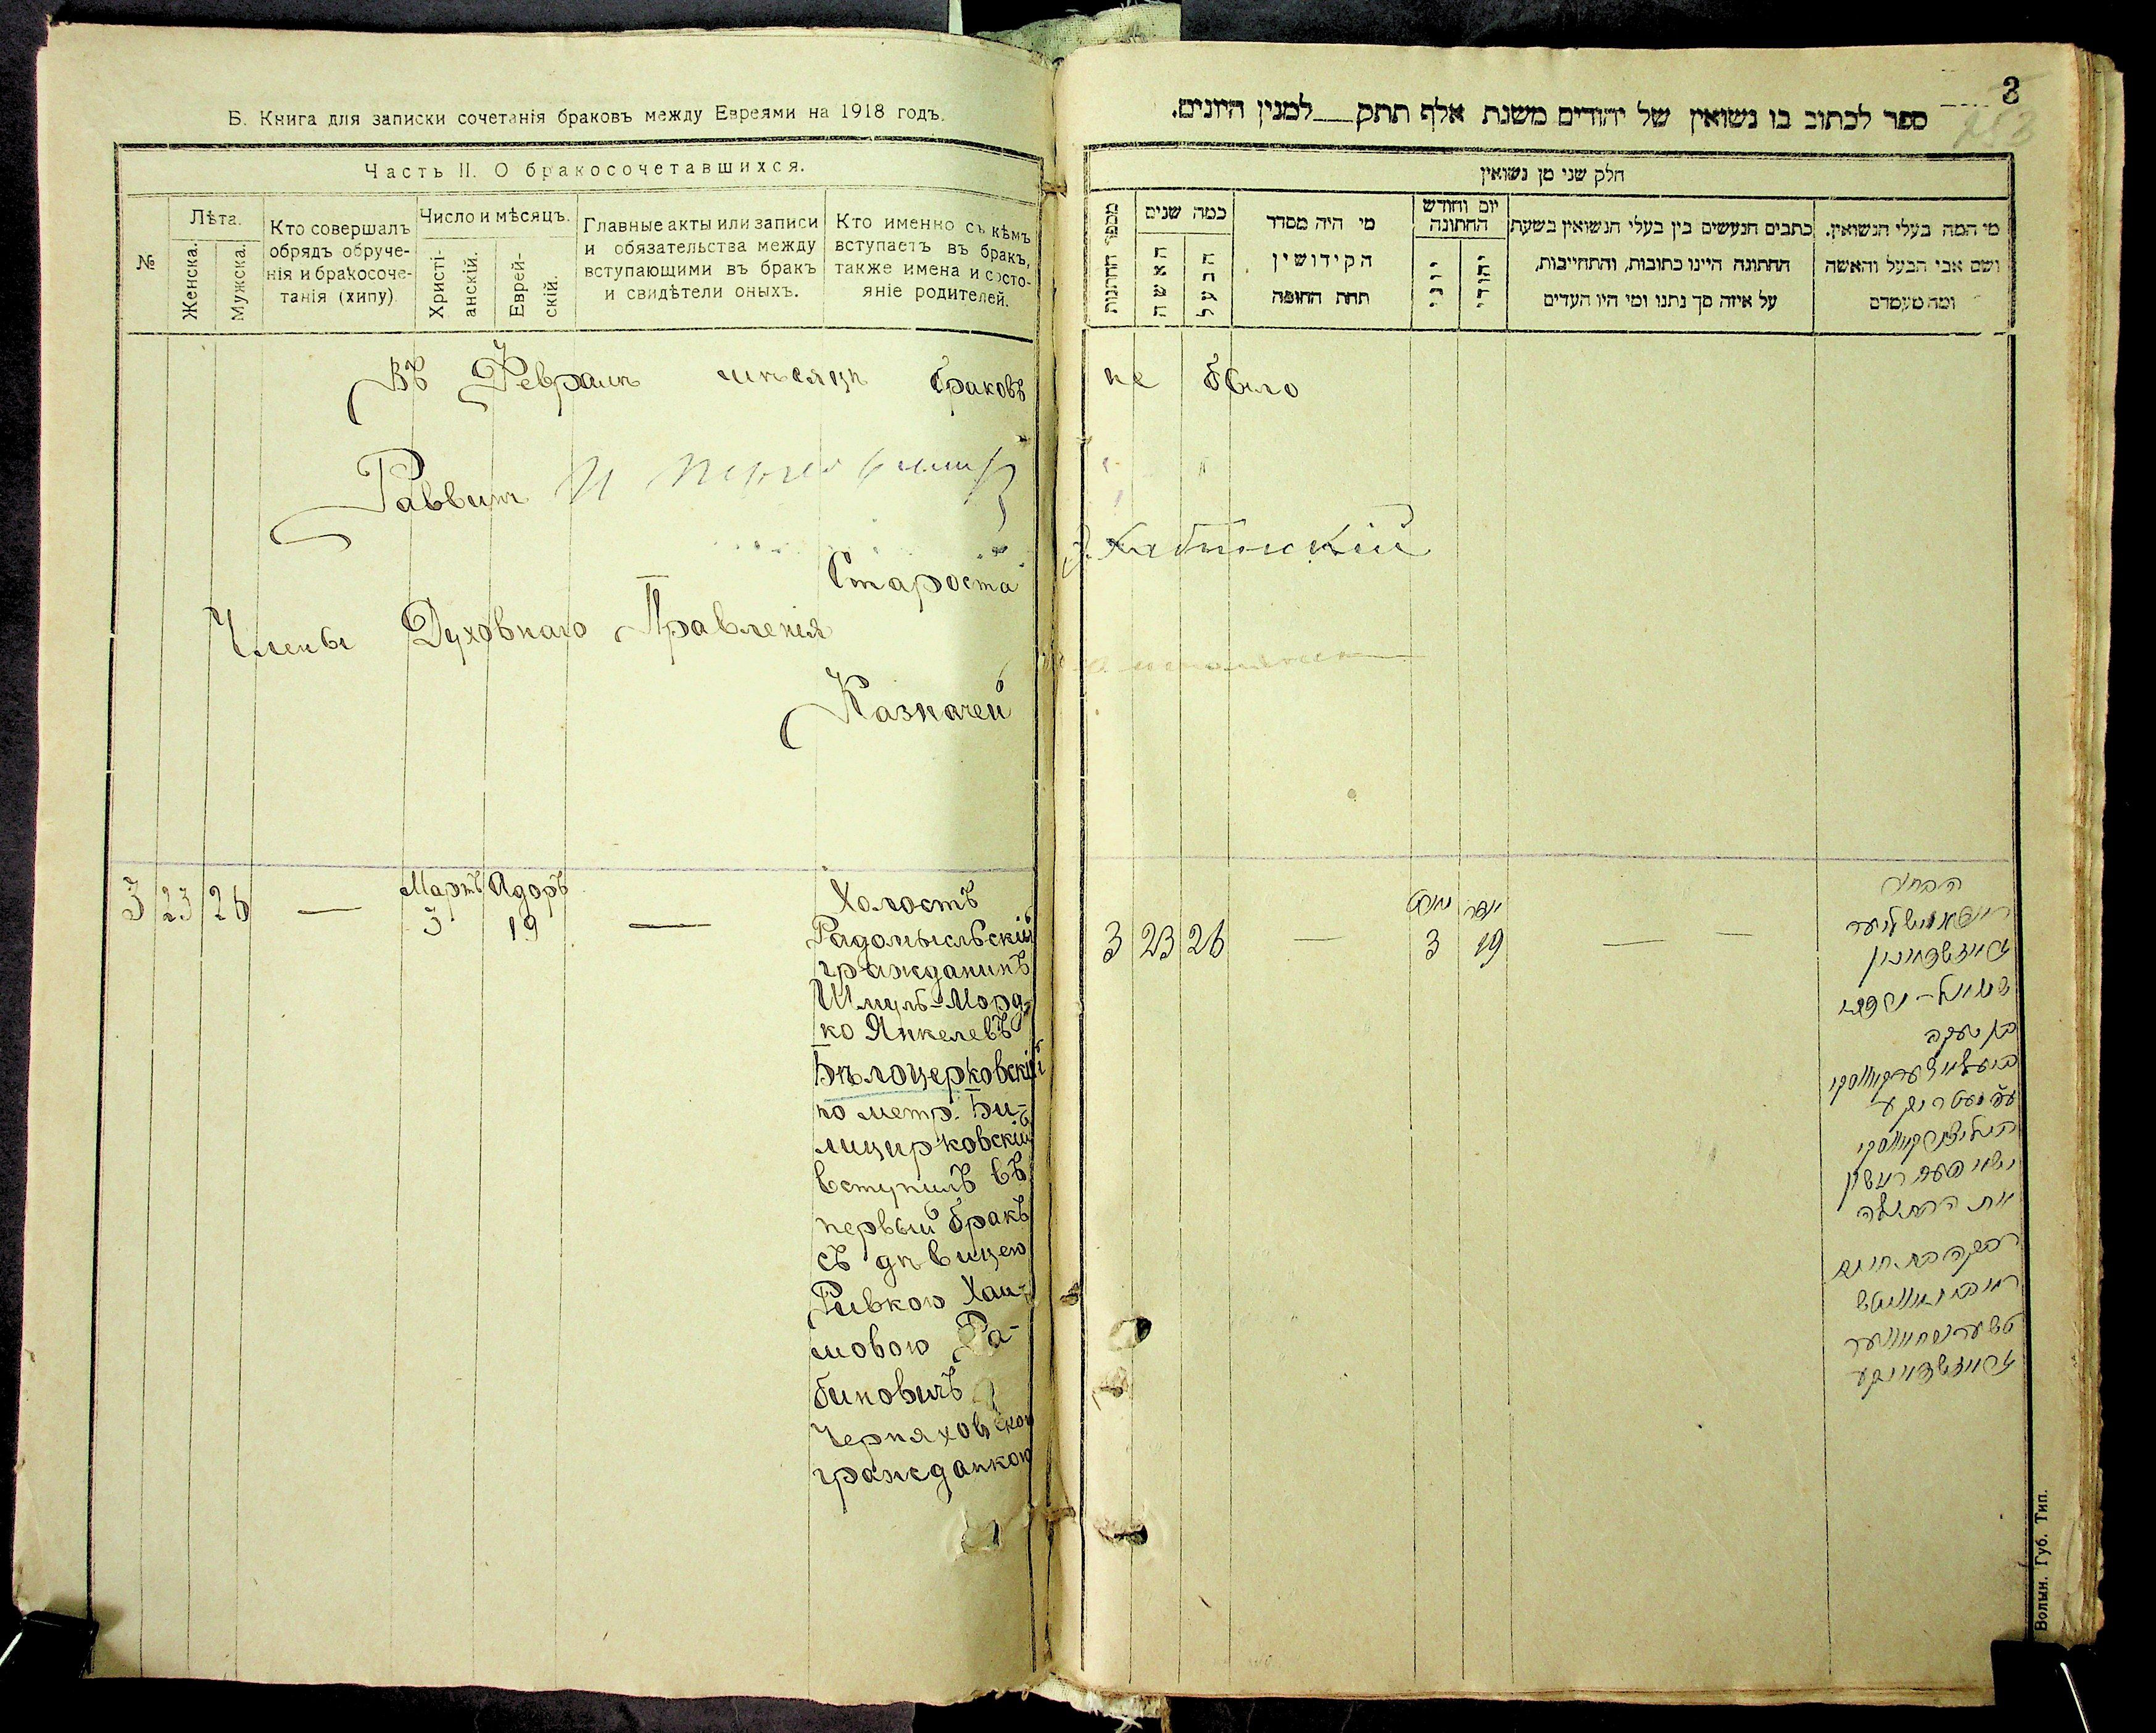 Б. Книга для записки сочетанія браковъ между Евреями на 1918 годъ.
Часть II. О бракосочетавшихся.
№
Лѣта.
Женска.
Мужска.
Кто совершалъ
обрядъ обруче-
нія и бракосоче-
танія (хипу)
Число и мѣсяцъ.
Христі-
анскій.
Еврей-
скій.
Главные акты или записи
и обязательства между
вступающими въ бракъ
и свидѣтели оныхъ.
Кто именно съ кѣмъ
вступаетъ въ бракъ,
также имена и состо-
яніе родителей.
Въ Февралѣ мѣсяцѣ браковъ
Раввинъ
Староста
Члены Духовнаго Правленія
Казначей
3 23 26 — Мартъ 3 Адоръ 19 —
Холостъ
Радомысльскій
гражданинъ
Шмуль-Морд-
ко Янкелевъ
Бѣлоцерковскій
по метр. Би-
лицирковскій
вступилъ въ
первый бракъ
съ дѣвицею
Ривкою Хаи-
мовою Ра-
биновичъ
Черняховской
гражданкою
3
253
ספר לכתוב בו נשואין של יהודים משנת אלף תתק__למנין היונים.
חלק שני מן נשואין
מספר החתנות
כמה שנים
האשה
הבעל
מי היה מסדר
הקידושין
תחת החופה
יום וחודש
החתונה
יוני
יהודי
כתבים הנעשים בין בעלי הנשואין בשעת
החתונה היינו כתובות, והתחייבות,
על איזה סך נתנו ומי היו העדים
מי המה בעלי הנשואין.
ושם אבי הבעל והאשה
ומה מעמדם
не было
Хабинскій
3 23 26 — 3 19 — —
הבחור
שמואל-מרדכו
בן יעקב
רבקה בת חיים
Волын. Губ. Тип.